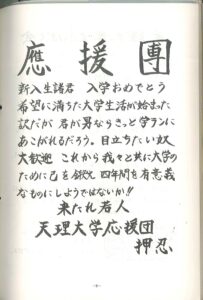 應援團
新入生諸君 入学おめでとう
希望に満ちた大学生活が始まった
訳だが 君が男ならきっと学ランに
あこがれるだろう。目立ちたい奴
大歓迎 これから我々と共に大学の
ために己を鍛え 四年間を有意義
なものにしようではないか!!
来たれ若人
天理大学応援団
押忍